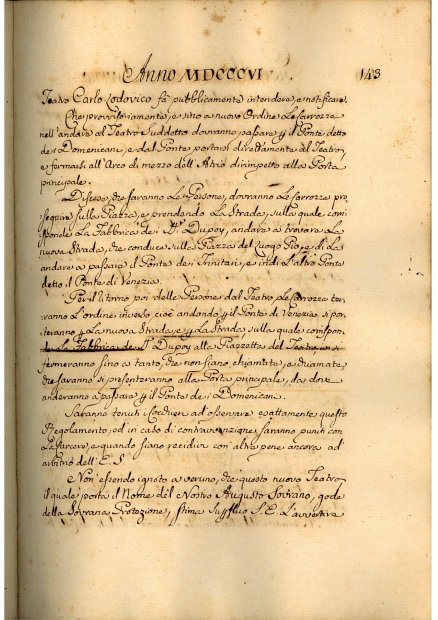 Anno MDCCCVI 143
Teatro Carlo Lodovico fà pubblicamente intendere, e notificare.
Che provvisoriamente, e sino a nuovo Ordine Le Carrozze
nell'andata al Teatro Suddetto dovranno passare p il Ponte detto
de i Domenicani, e dal Ponte portarsi direttamente al Teatro,
e fermarsi all'Arco di mezzo dell'Atrio dirimpetto alla Porta
principale.
Discese, che saranno Le Persone, dovranno Le Carrozze pro-
seguire sulla Piazza, e prendendo La Strada, sulla quale corri-
sponde La Fabbrica de i Dupoy, andare a trovare La
nuova Strada, che conduce sulla Piazza del Luogo Pio, e di La
andare a passare il Ponte de i Trinitari, e indi L'altro Ponte
detto il Ponte di Venezia.
Per il ritorno poi delle Persone dal Teatro Le Carrozze ter-
ranno L'ordine inverso, cioè andando p il Ponte di Venezia si por-
teranno p La nuova Strada, e p La Strada, sulla quale corrispon-
de La Fabbrica de Dupoy alla Piazzetta del Teatro, ivi si
fermeranno fino a tanto, che non siano chiamate, e chiamate,
che saranno si presenteranno alla Porta principale, da dove
anderanno a passare p il Ponte de i Domenicani.
Saranno tenuti i Cocchieri ad osservare esattamente questo
Regolamento, ed in caso di contravvenzione saranno puniti con
La Carcere, e quando siano recidivi con altre pene ancora ad
arbitrio dell'E. S.
Non essendo ignoto a veruno, che questo nuovo Teatro,
il quale porta il Nome del Nostro Augusto Sovrano, gode
della Sovrana Protezione, stima Superfluo S. E. L'avvertire